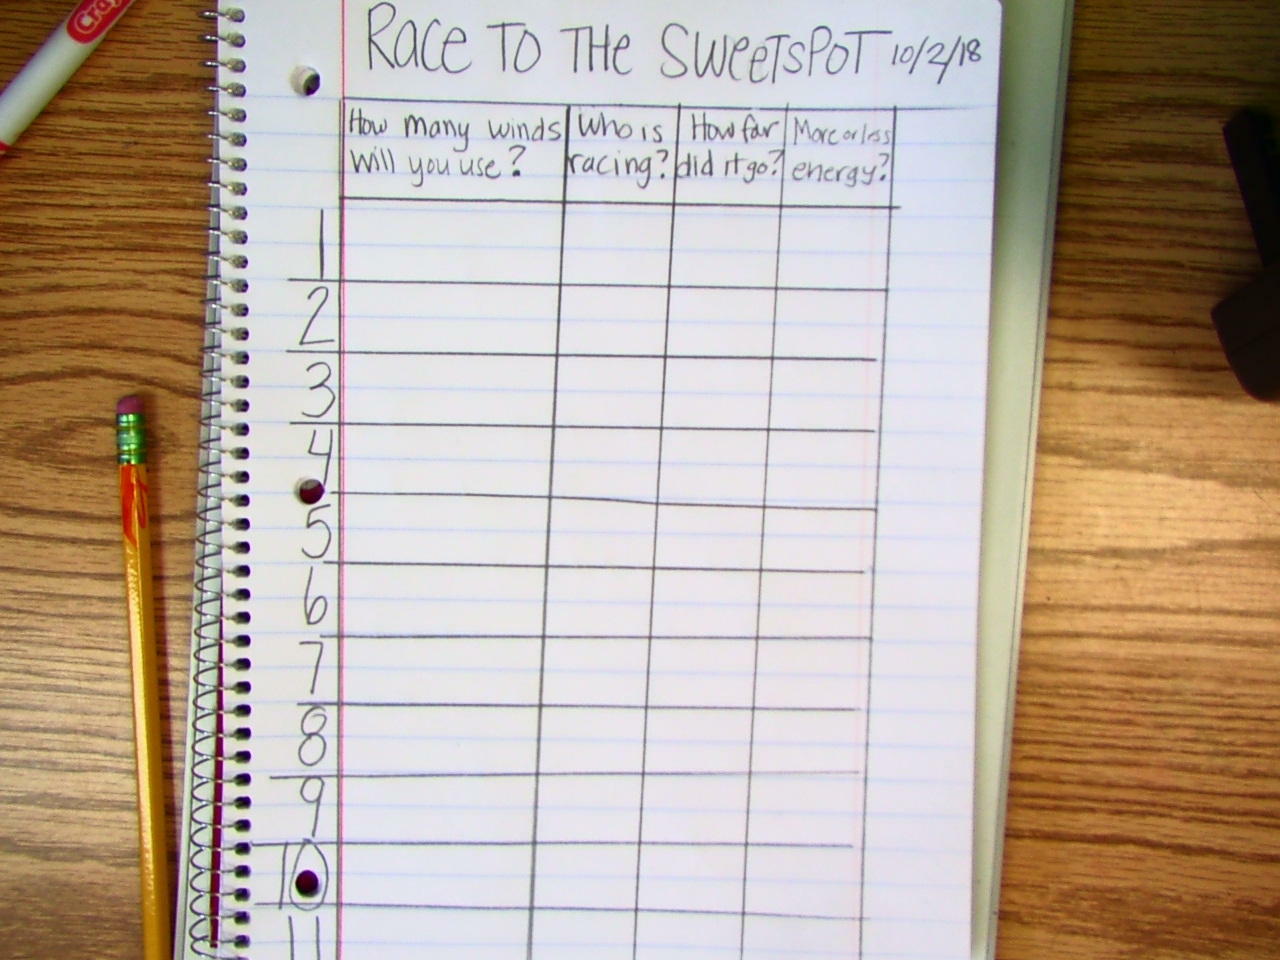 Cray
RACE TO THE SWEETSPOT 10/2/18
How many winds will you use?
Who is racing?
How far did it go?
More or less energy?
1
2
3
4
5
6
7
8
9
10
11